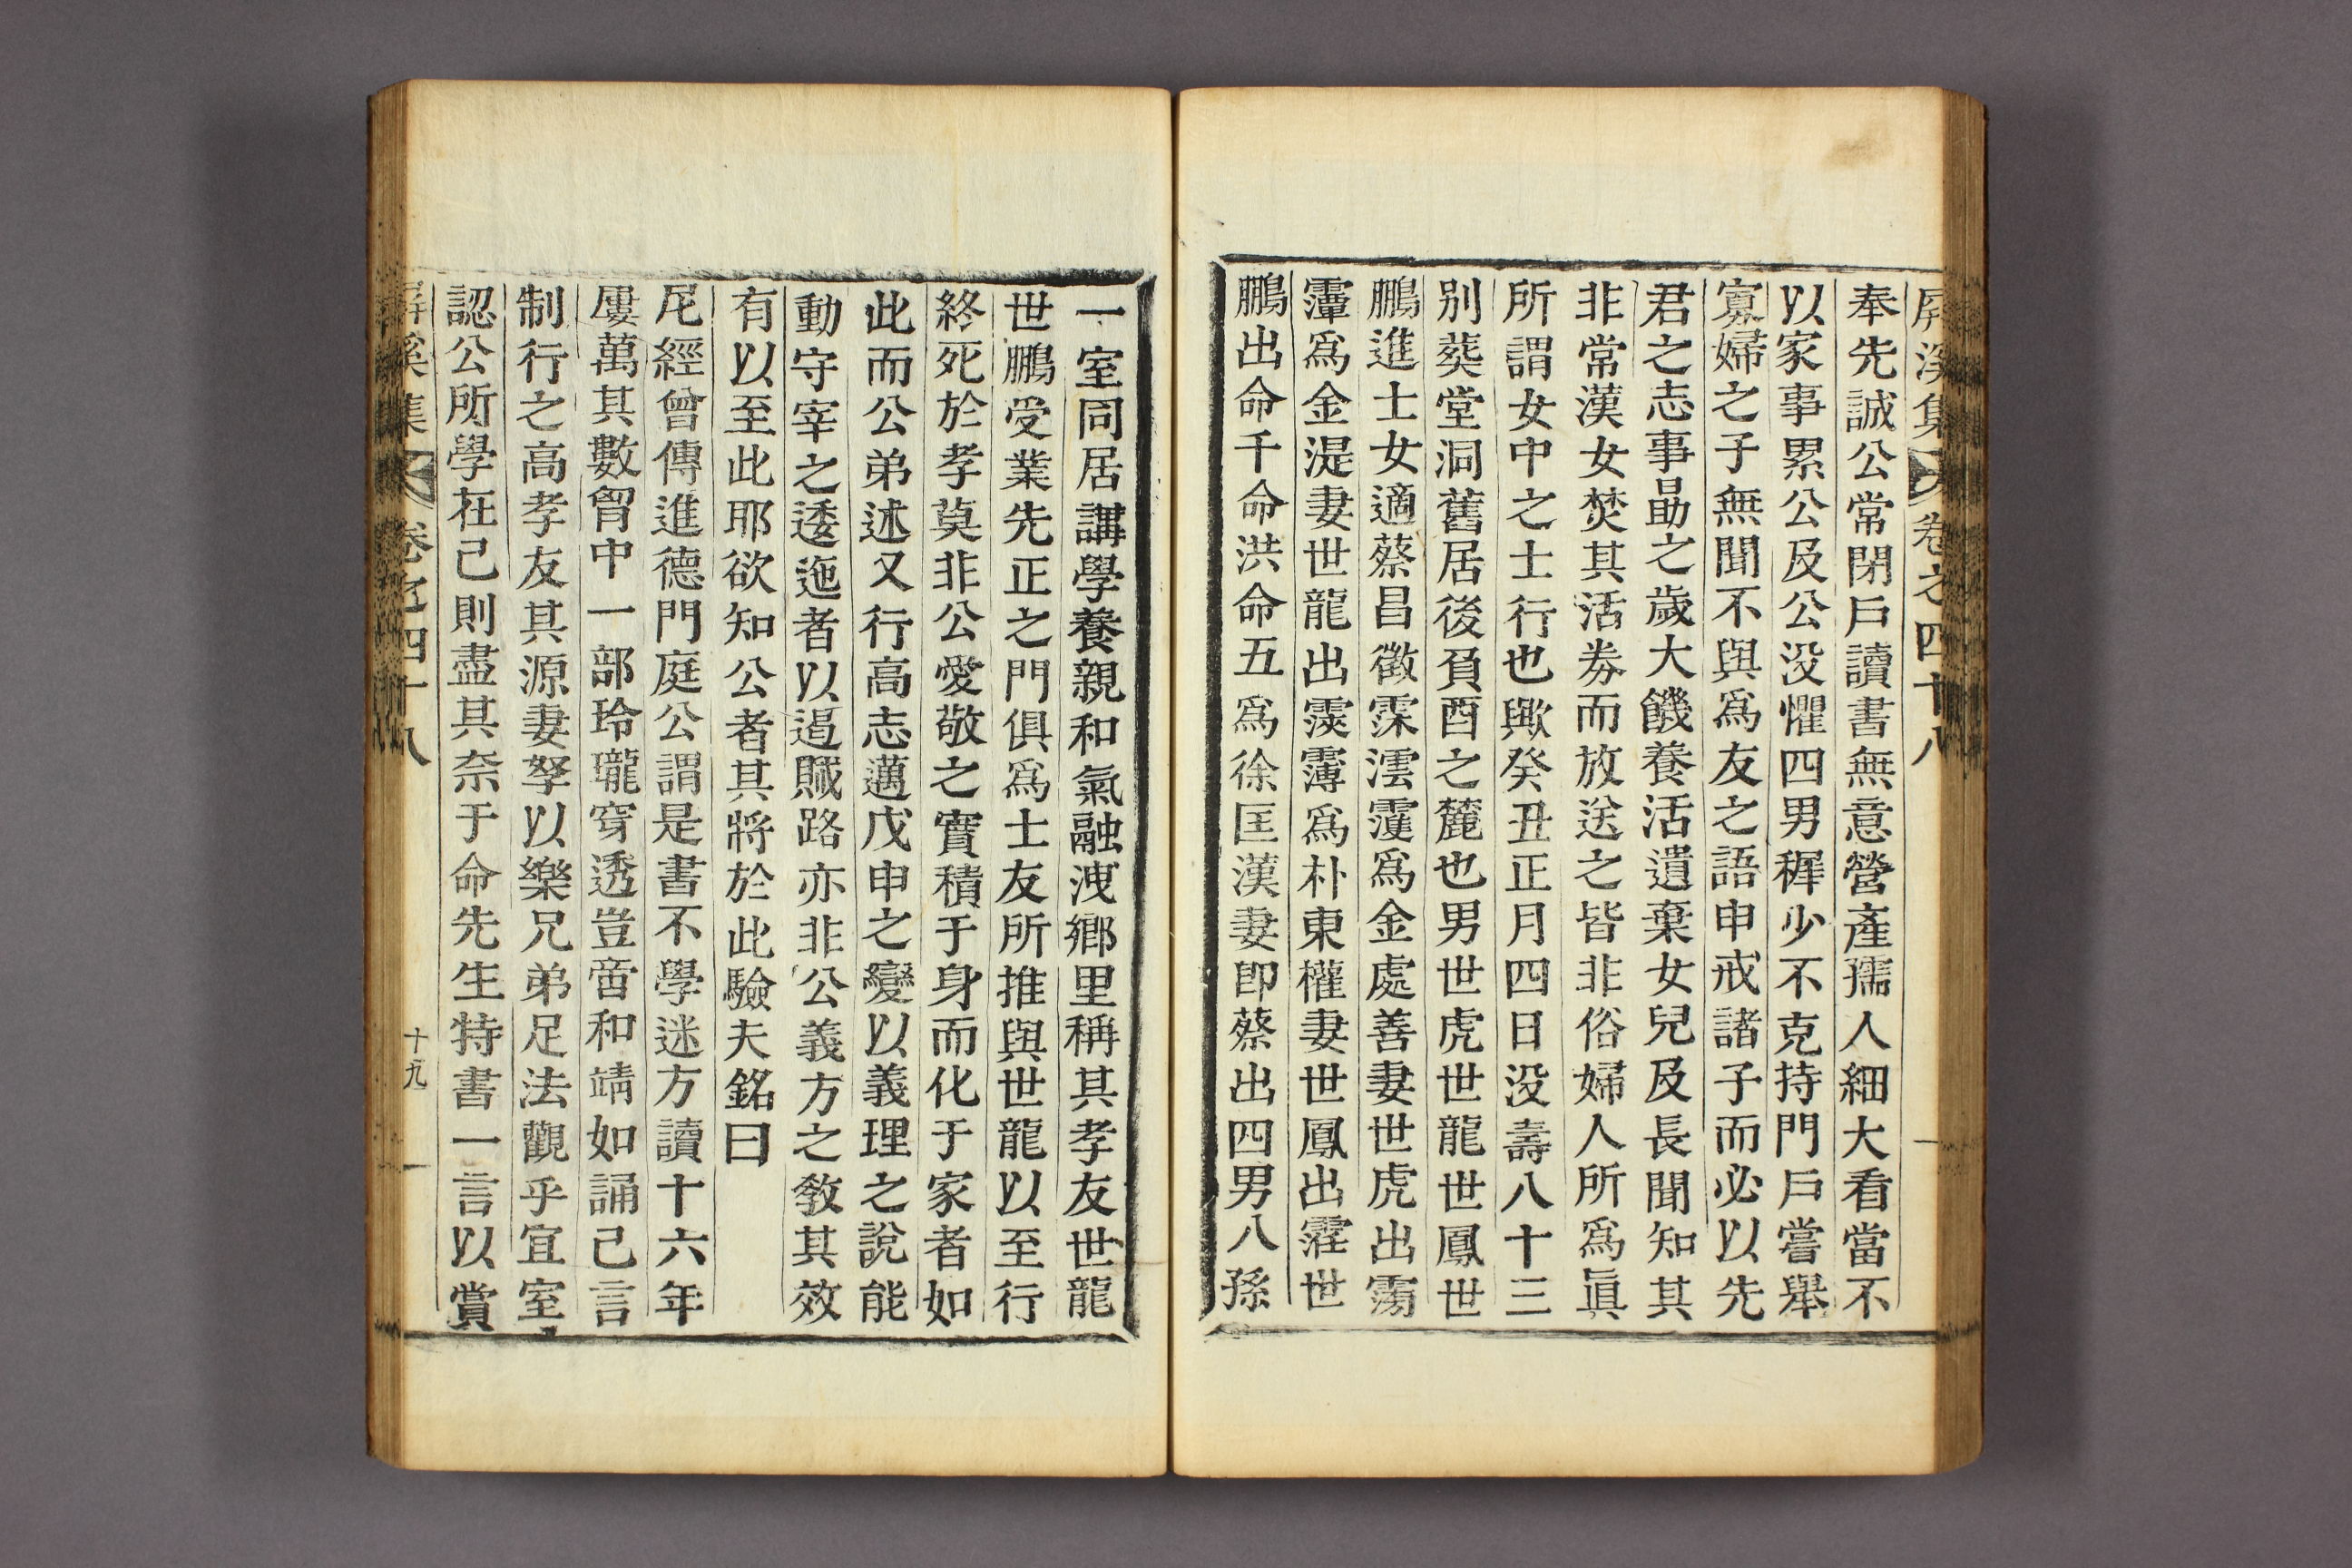 屏溪集 卷之四十八
奉先誠公常閉戶讀書無意營產孺人細大看當不
以家事累公及公没懼四男穉少不克持門戶嘗舉
寡婦之子無聞不與爲友之語申戒諸子而必以先
君之志事勗之歲大饑養活遺棄女兒及長聞知其
非常漢女焚其活券而放送之皆非俗婦人所爲眞
所謂女中之士行也歟癸丑正月四日没壽八十三
別葬堂洞舊居後負酉之麓也男世虎世龍世鳳世
鵬進士女適蔡昌徵霂澐霔爲金處善妻世虎出霶
瀈爲金湜妻世龍出霙霛爲朴東權妻世鳳出霔世
鵬出命千命洪命五爲徐匡漢妻卽蔡出四男八孫
一室同居講學養親和氣融洩鄉里稱其孝友世龍
世鵬受業先正之門俱爲士友所推與世龍以至行
終死於孝莫非公愛敬之實積于身而化于家者如
此而公弟述又行高志邁戊申之變以義理之說能
動守宰之逶迤者以遏賊路亦非公義方之敎其效
有以至此耶欲知公者其將於此驗夫銘曰
凡經曾傳進德門庭公謂是書不學迷方讀十六年
屢萬其數胷中一部玲瓏穿透豈啻和靖如誦己言
制行之高孝友其源妻孥以樂兄弟足法觀乎宜室
認公所學在己則盡其奈于命先生特書一言以賞
屏溪集 卷之四十八 十九